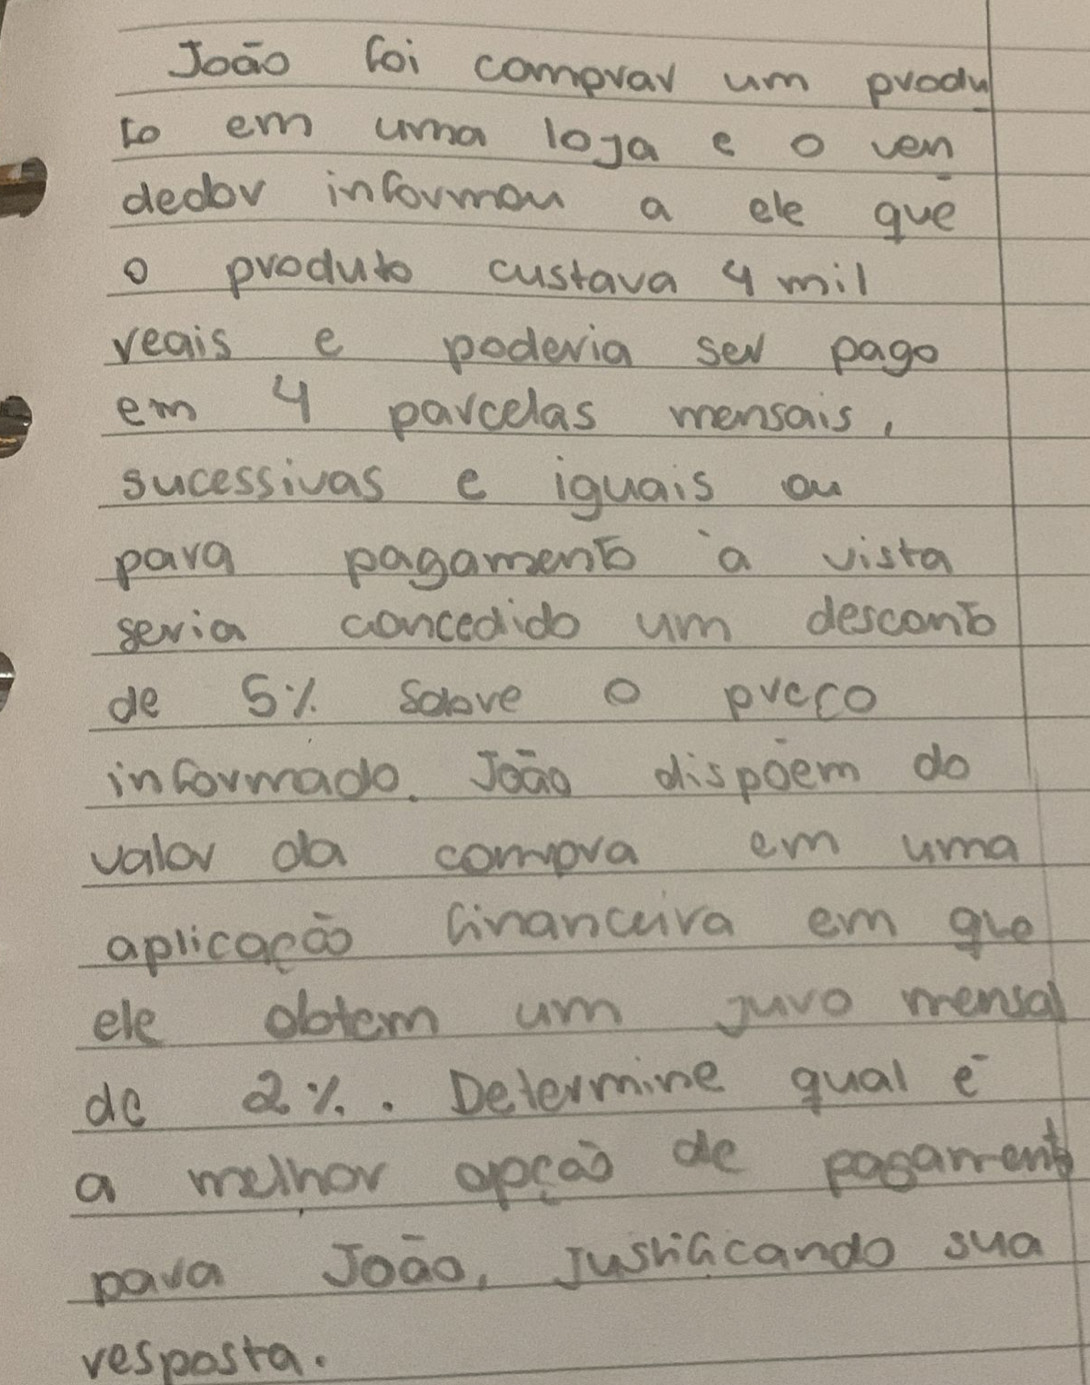 João foi comprar um produ
to em uma loja e o ven
dedor informou a ele que
o produto custava 4 mil
reais e poderia ser pago
em 4 parcelas mensais,
sucessivas e iguais ou
para pagamento à vista
seria concedido um desconto
de 5% sobre o preço
informado. João dispõem do
valor da compra em uma
aplicação financeira em que
ele obtem um juro mensal
de 2%. Determine qual é
a melhor opção de pagamento
para João, justificando sua
resposta.